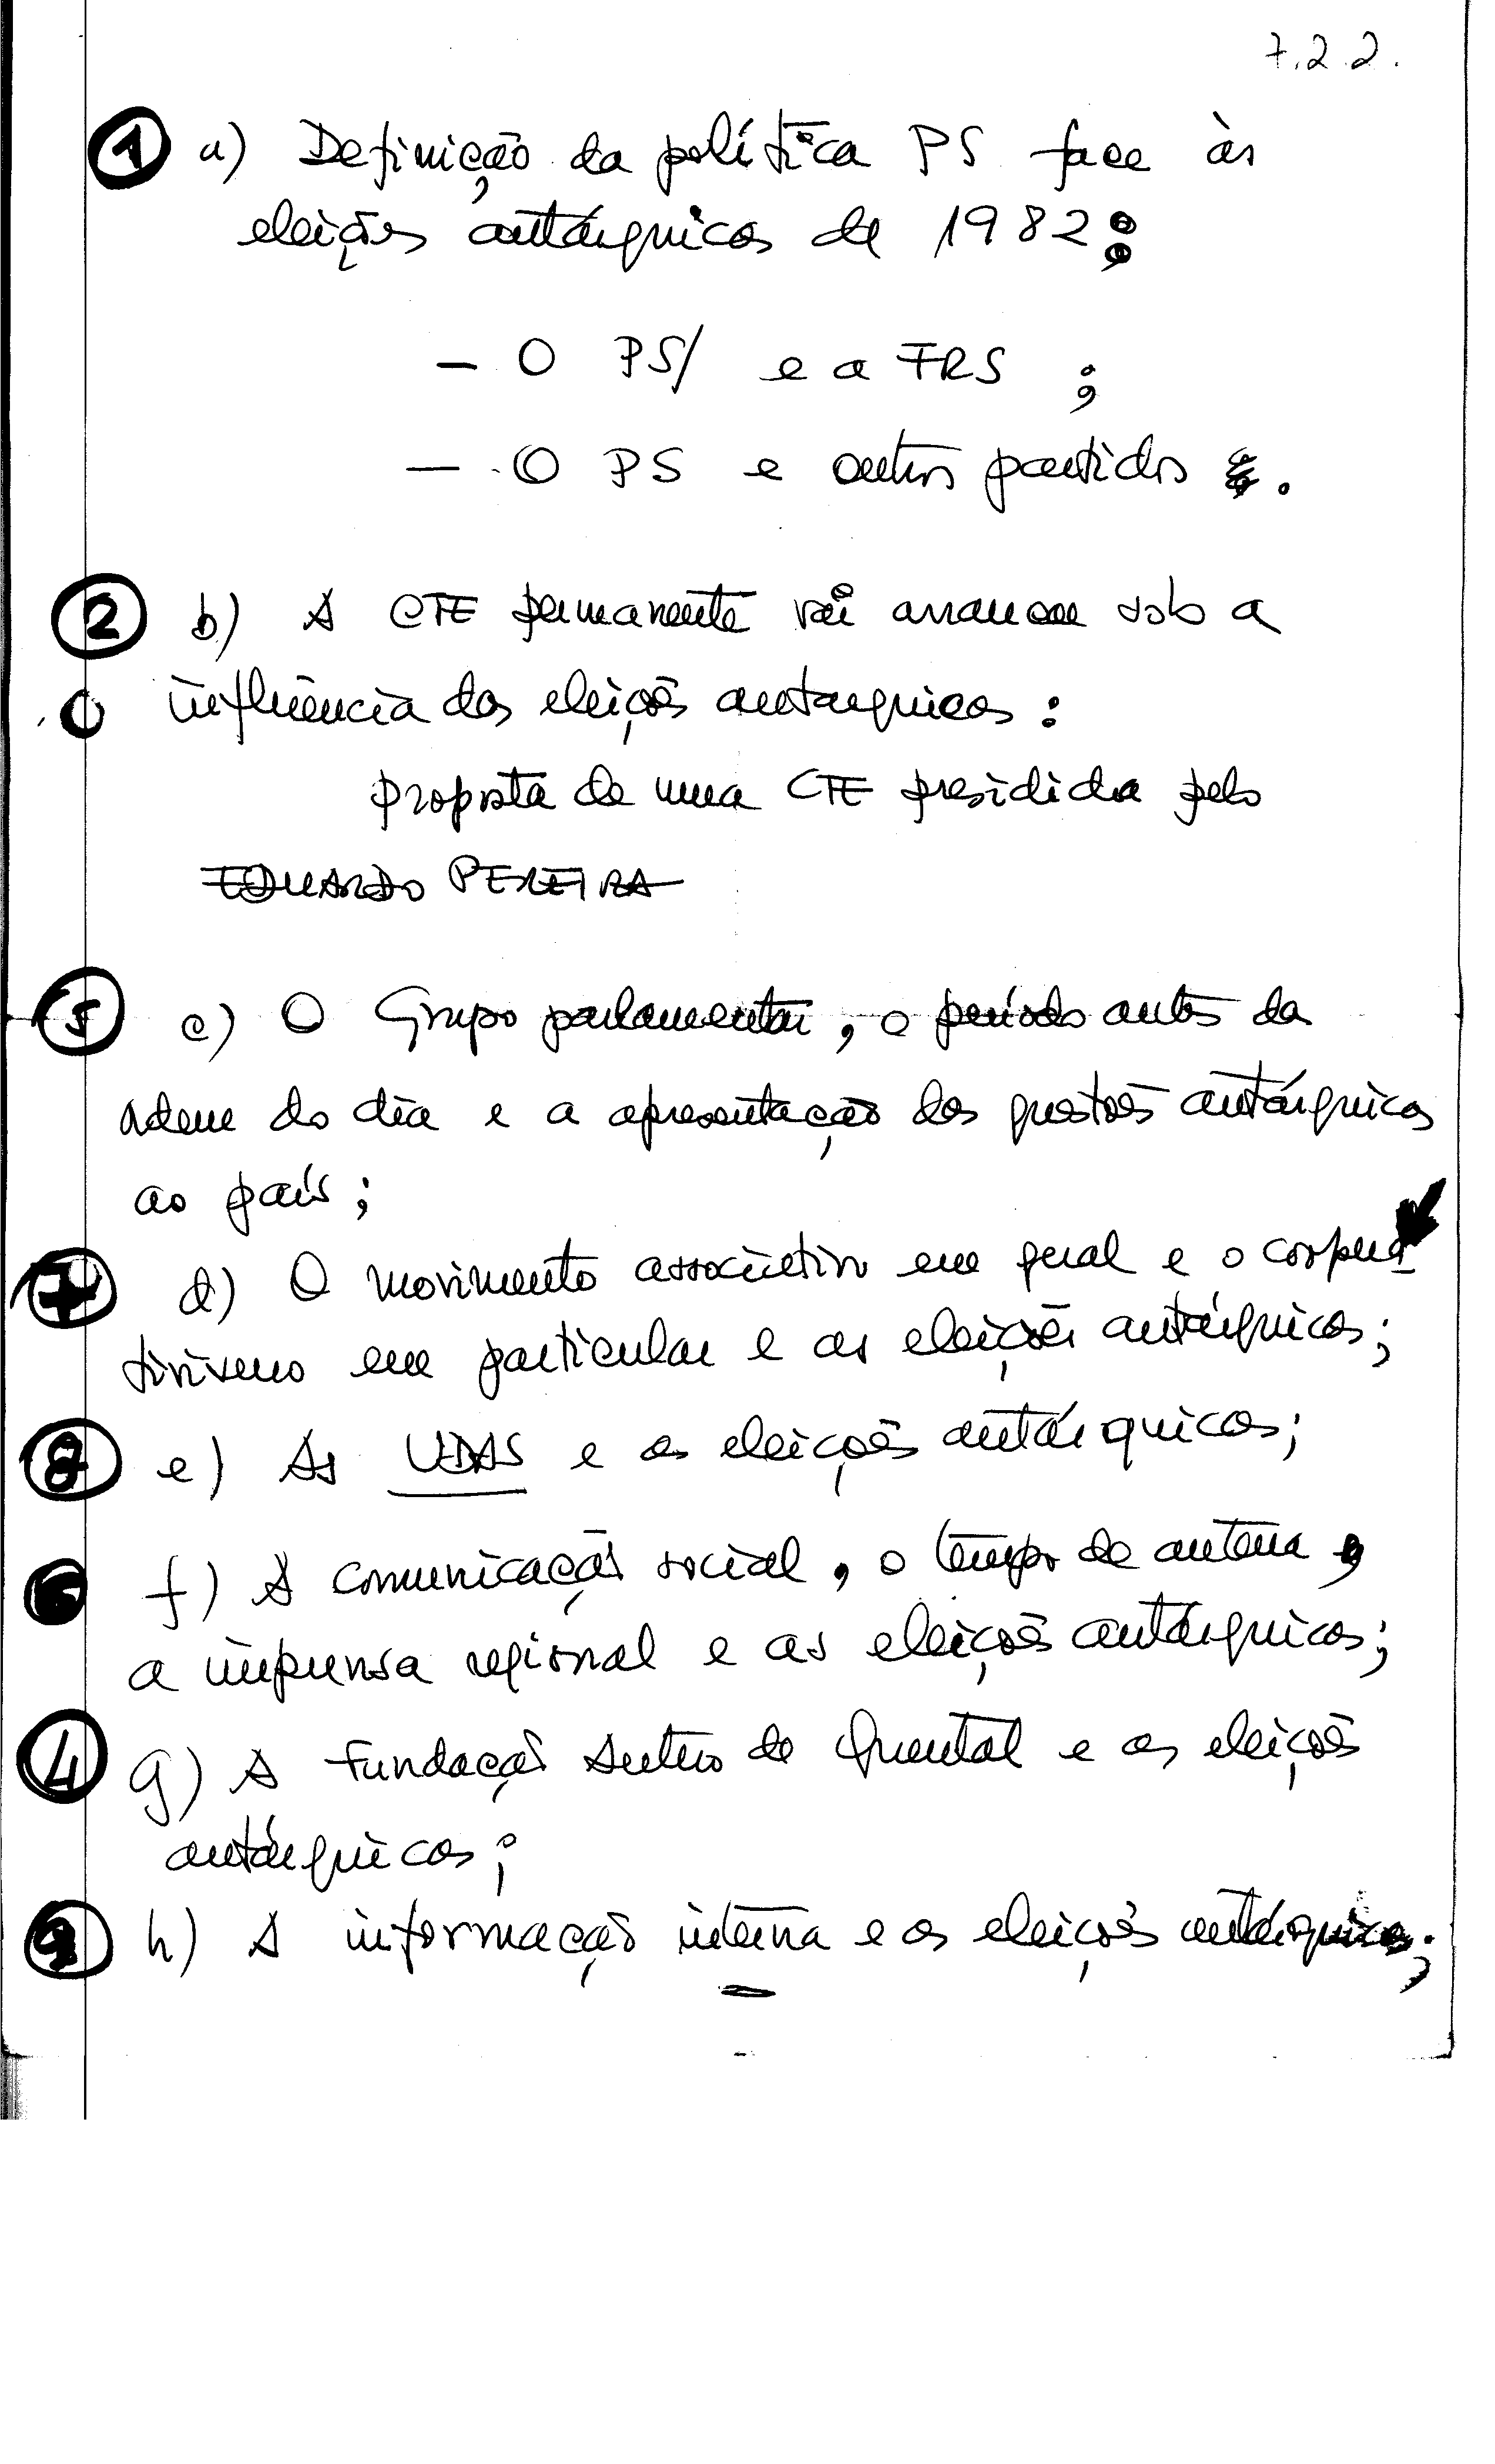 7.2.2.
1 a) Definição da política PS face às
eleições autárquicas de 1982:
- O PS/ e a FRS ;
- O PS e outros partidos .
2 b) A CTE permanente vai arrancar sob a
influência das eleições autárquicas :
proposta de uma CTE presidida pelo
EDUARDO PEREIRA
5 c) O Grupo parlamentar, o período antes da
ordem do dia e a apresentação das questões autárquicas
ao país ;
7 d) O movimento associativo em geral e o corpora
tivismo em particular e as eleições autárquicas ;
8 e) As UDAS e as eleições autárquicas ;
6 f) A comunicação social, o tempo de antena,
a imprensa regional e as eleições autárquicas ;
4 g) A Fundação Antero de Quental e as eleições
autárquicas ;
9 h) A informação interna e as eleições autárquicas ;